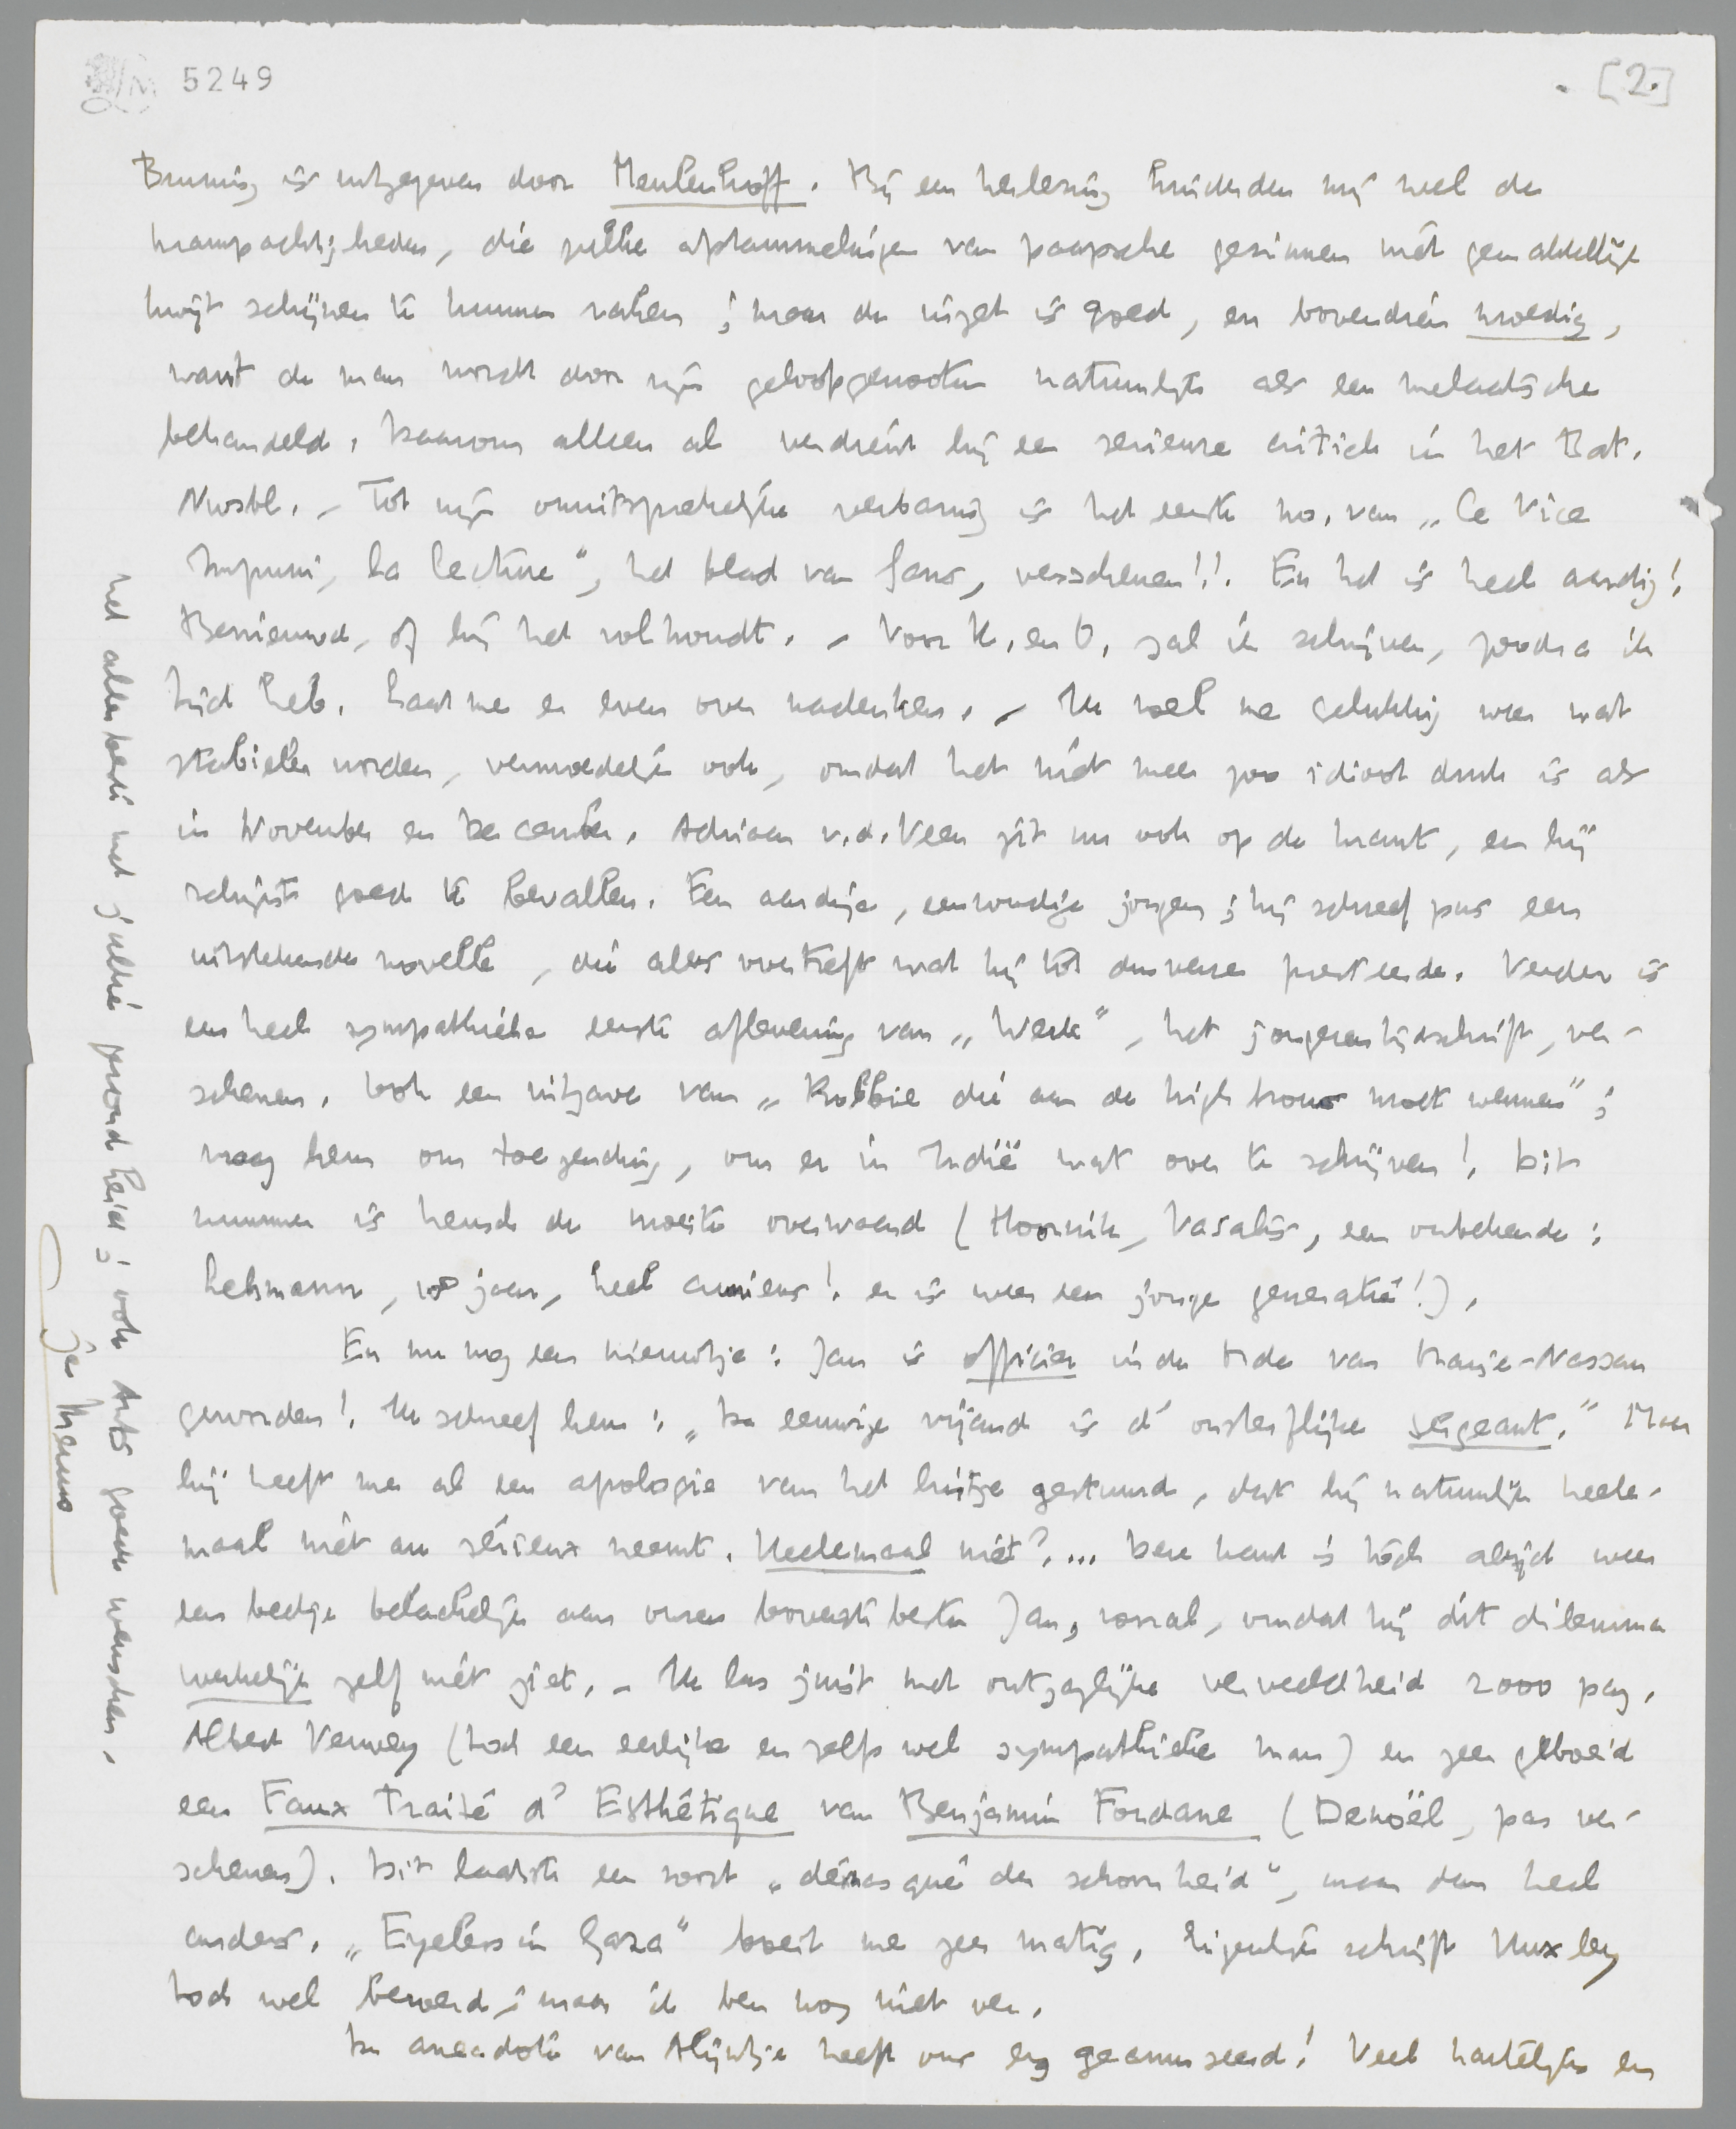 5249
[2.]
Bruning is uitgegeven door Meulenhoff. Bij een herlezing hinderden mij veel de
krampachtigheden, die zulke afstammelingen van paapsche gezinnen niet gemakkelijk
kwijt schijnen te kunnen raken; maar de inzet is goed, en bovendien moedig,
want de man wordt door zijn geloofsgenooten natuurlijk als een melaatsche
behandeld. Daarom alleen al verdient hij een serieuze critiek in het Bat.
Nwsbl. – Tot mijn onuitsprekelijke verbazing is het eerste no. van „Ce Vice
Impuni, la Lecture”, het blad van Gans, verschenen!! En het is heel aardig!
Benieuwd, of hij het volhoudt. – Voor K. en O. zal ik schrijven, zoodra ik
tijd heb. Laat me er even over nadenken. – Ik voel me gelukkig weer wat
stabieler worden, vermoedelijk ook, omdat het niet meer zoo idioot druk is als
in November en December. Adriaan v.d. Veen zit nu ook op de krant, en hij
schijnt goed te bevallen. Een aardige, eenvoudige jongen; hij schreef pas een
uitstekende novelle, die alles overtreft wat hij tot dusverre presteerde. Verder is
een heel sympathieke eerste aflevering van „Werk”, het jongerentijdschrift, ver-
schenen. Ook een uitgave van „Robbie die aan de high brows moet wennen”;
vraag hem om toezending, om er in Indië wat over te schrijven! Dit
nummer is heusch de moeite overwaard (Hoornik, Vasalis, een onbekende:
Lehmann, 18 jaar, heel curieus! er is weer een jonge generatie!).
En nu nog een nieuwtje: Jan is officier in de Orde van Oranje-Nassau
geworden! Ik schreef hem: „De eeuwige vijand is d' onsterflijke sergeant.” Maar
hij heeft me al een apologie van het lintje gestuurd, dat hij natuurlijk heele-
maal niet au sérieux neemt. Heelemaal niet?.... Deze kant is tóch altijd weer
een beetje belachelijk aan onzen bovenste besten Jan, vooral, omdat hij dit dilemma
werkelijk zelf niet ziet. – Ik las juist met ontzaglijke verveeldheid 2000 pag.
Albert Verwey (toch een eerlijke en zelfs wel sympathieke man) en zeer geboeid
een Faux Traité d'Esthétique van Benjamin Fondane (Denoël, pas ver-
schenen). Dit laatste een soort „démasqué der schoonheid”, maar dan heel
anders. „Eyeless in Gaza” boeit me zeer matig. Eigenlijk schrijft Huxley
toch wel beroerd; maar ik ben nog niet ver.
De anecdote van Alijntje heeft ons erg geamuseerd! Veel hartelijks en
het allerbeste met jullie gezondheid; ook Ants goede wenschen.
je Menno